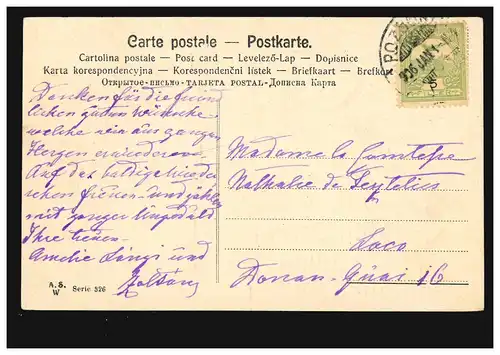 Carte postale – Postkarte.
Cartolina postale – Post card – Levelező-Lap – Dopisnice
Karta korespondencyjna – Korespondenční lístek – Briefkaart – Brefkort
Открытое-письмо - TARJETA POSTAL - Дописна Карта
POZSONY
Danken für die freund
lichen guten Wünsche
welche wir aus ganzem
Herzen erwiedern
Auf das baldige Wieder
sehen freuen und
mit ganzer Ungeduld
Ihre treuen
Amelie und
Zoltán
Madame la Comtesse
Nathalie de
Loco
Donau-Quai 16
A. S.
W
Serie 526